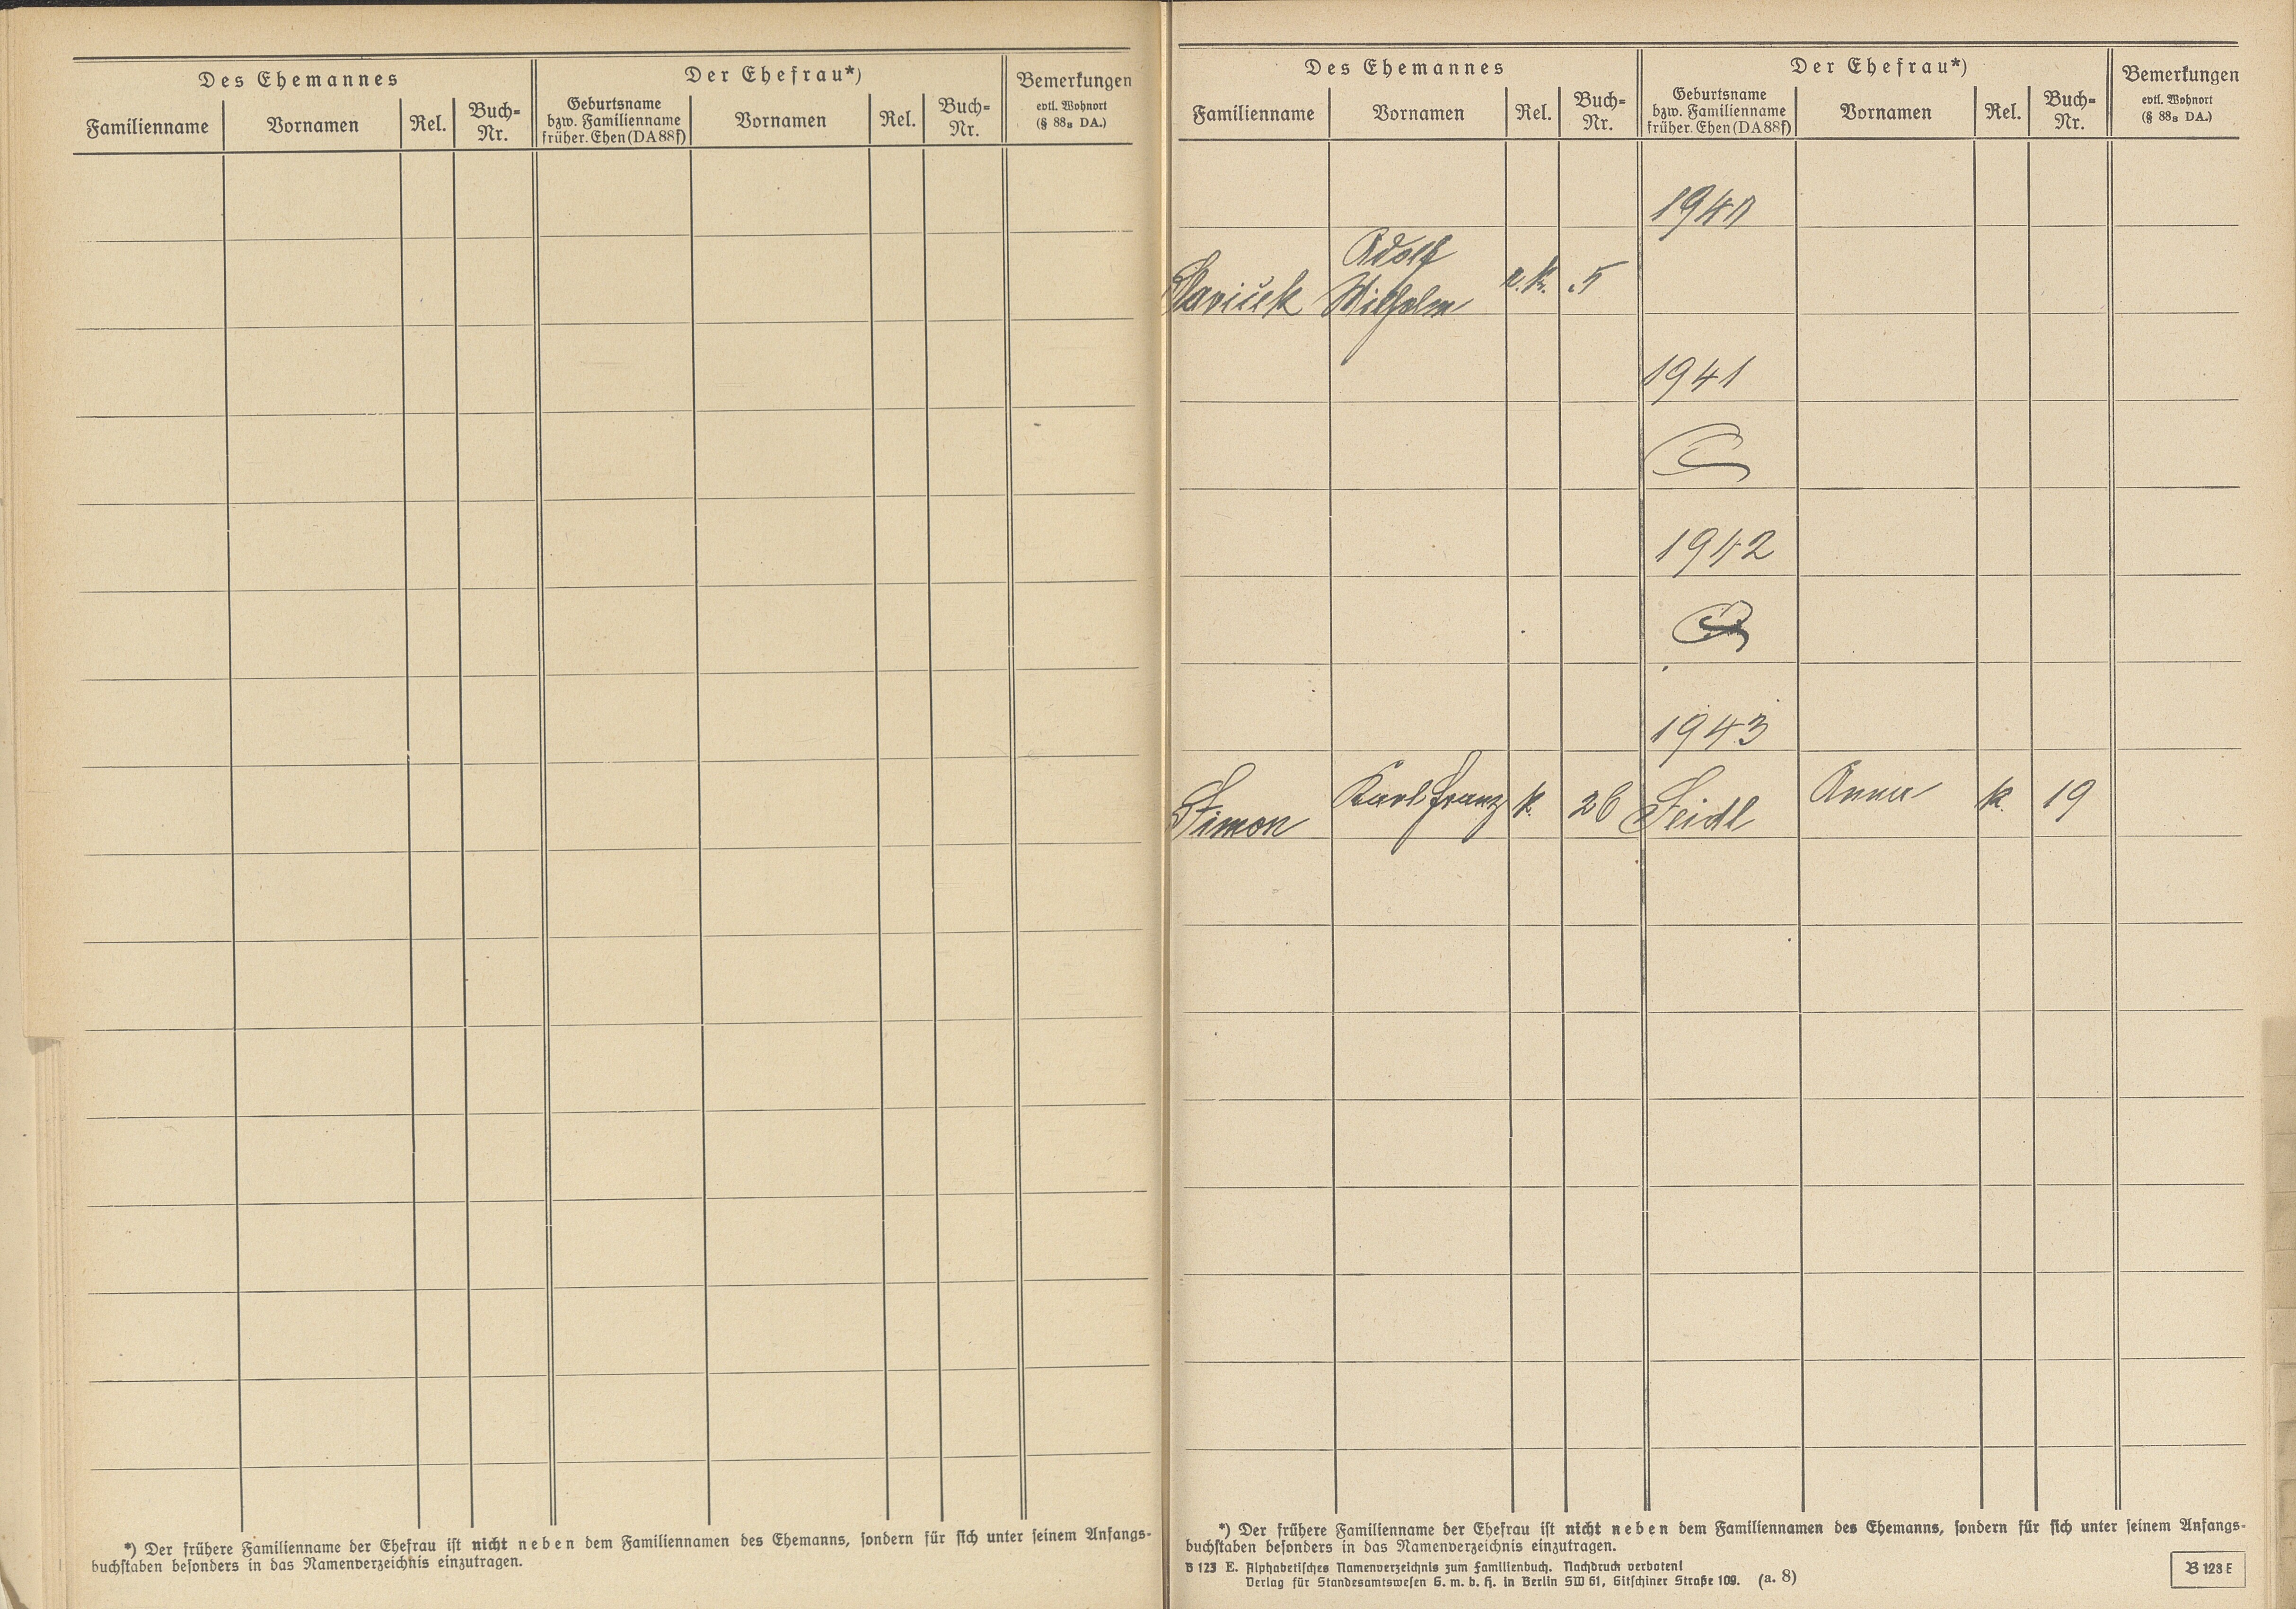 Des Ehemannes
Der Ehefrau*)
Bemerkungen
evtl. Wohnort
(§ 88B DA.)
Familienname
Vornamen
Rel.
Buch-
Nr.
Geburtsname
bzw. Familienname
früher. Ehen (DA 88f)
Vornamen
Rel.
Buch-
Nr.
*) Der frühere Familienname der Ehefrau ist nicht neben dem Familiennamen des Ehemanns, sondern für sich unter seinem Anfangs-
buchstaben besonders in das Namenverzeichnis einzutragen.
Des Ehemannes
Der Ehefrau*)
Bemerkungen
evtl. Wohnort
(§ 88B DA.)
Familienname
Vornamen
Rel.
Buch-
Nr.
Geburtsname
bzw. Familienname
früher. Ehen (DA 88f)
Vornamen
Rel.
Buch-
Nr.
1940
Adolf
Slavíček Wilhelm r.k. 5
1941
1942
1943
Simon Karl Franz k. 26 Seidl Anna k. 19
*) Der frühere Familienname der Ehefrau ist nicht neben dem Familiennamen des Ehemanns, sondern für sich unter seinem Anfangs-
buchstaben besonders in das Namenverzeichnis einzutragen.
B 123 E. Alphabetisches Namenverzeichnis zum Familienbuch. Nachdruck verboten!
Verlag für Standesamtswesen G. m. b. H. in Berlin SW 61, Gitschiner Straße 109. (a. 8)
B 123 E